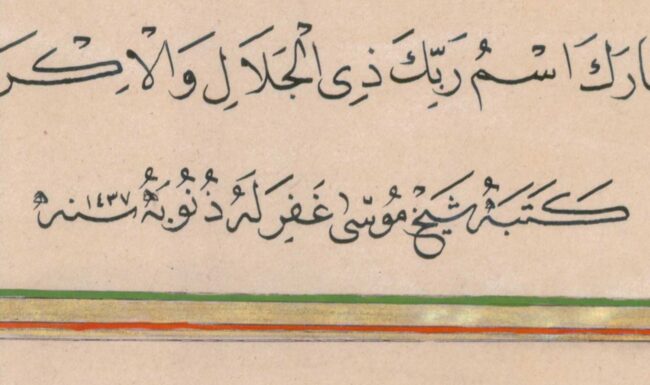 بَارَكَ اسْمُ رَبِّكَ ذِى الْجَلَالِ وَالْاِكْرَ
كَتَبَهُ شَيْخْ مُوسٰى غَفِرَ لَهُ ذُنُوبَهُ سنه ١٤٣٧